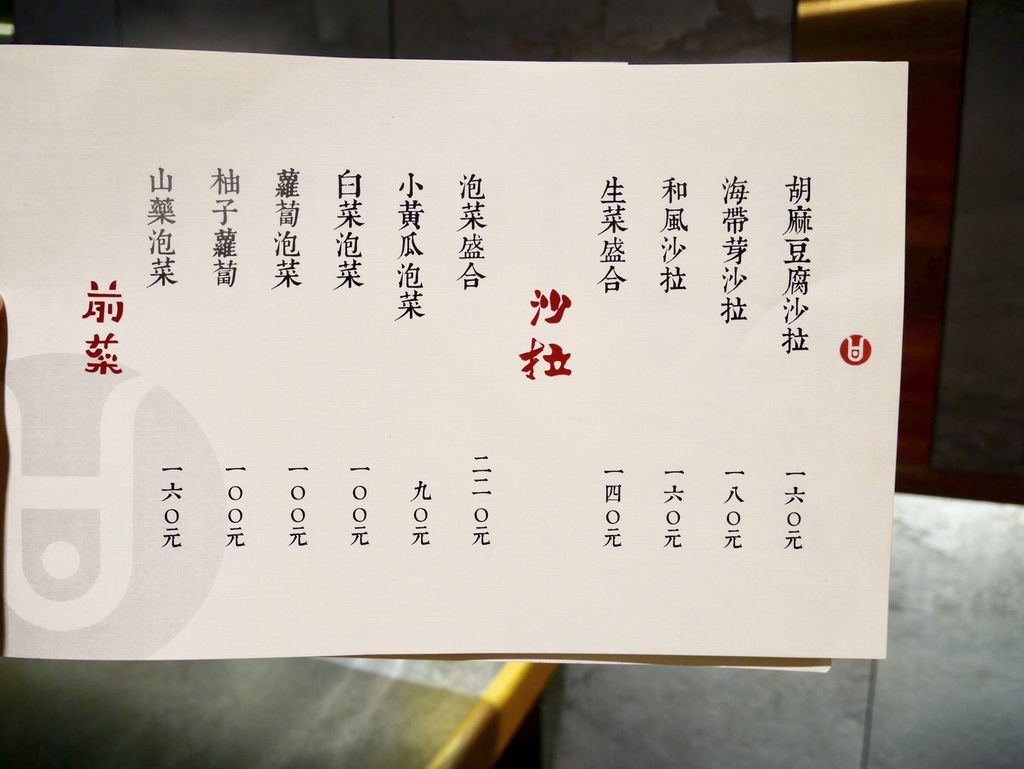 胡麻豆腐沙拉 一六〇元
海帶芽沙拉 一八〇元
和風沙拉 一六〇元
生菜盛合 一四〇元
沙拉
泡菜盛合 二二〇元
小黃瓜泡菜 九〇元
白菜泡菜 一〇〇元
蘿蔔泡菜 一〇〇元
柚子蘿蔔 一〇〇元
山藥泡菜 一六〇元
前菜